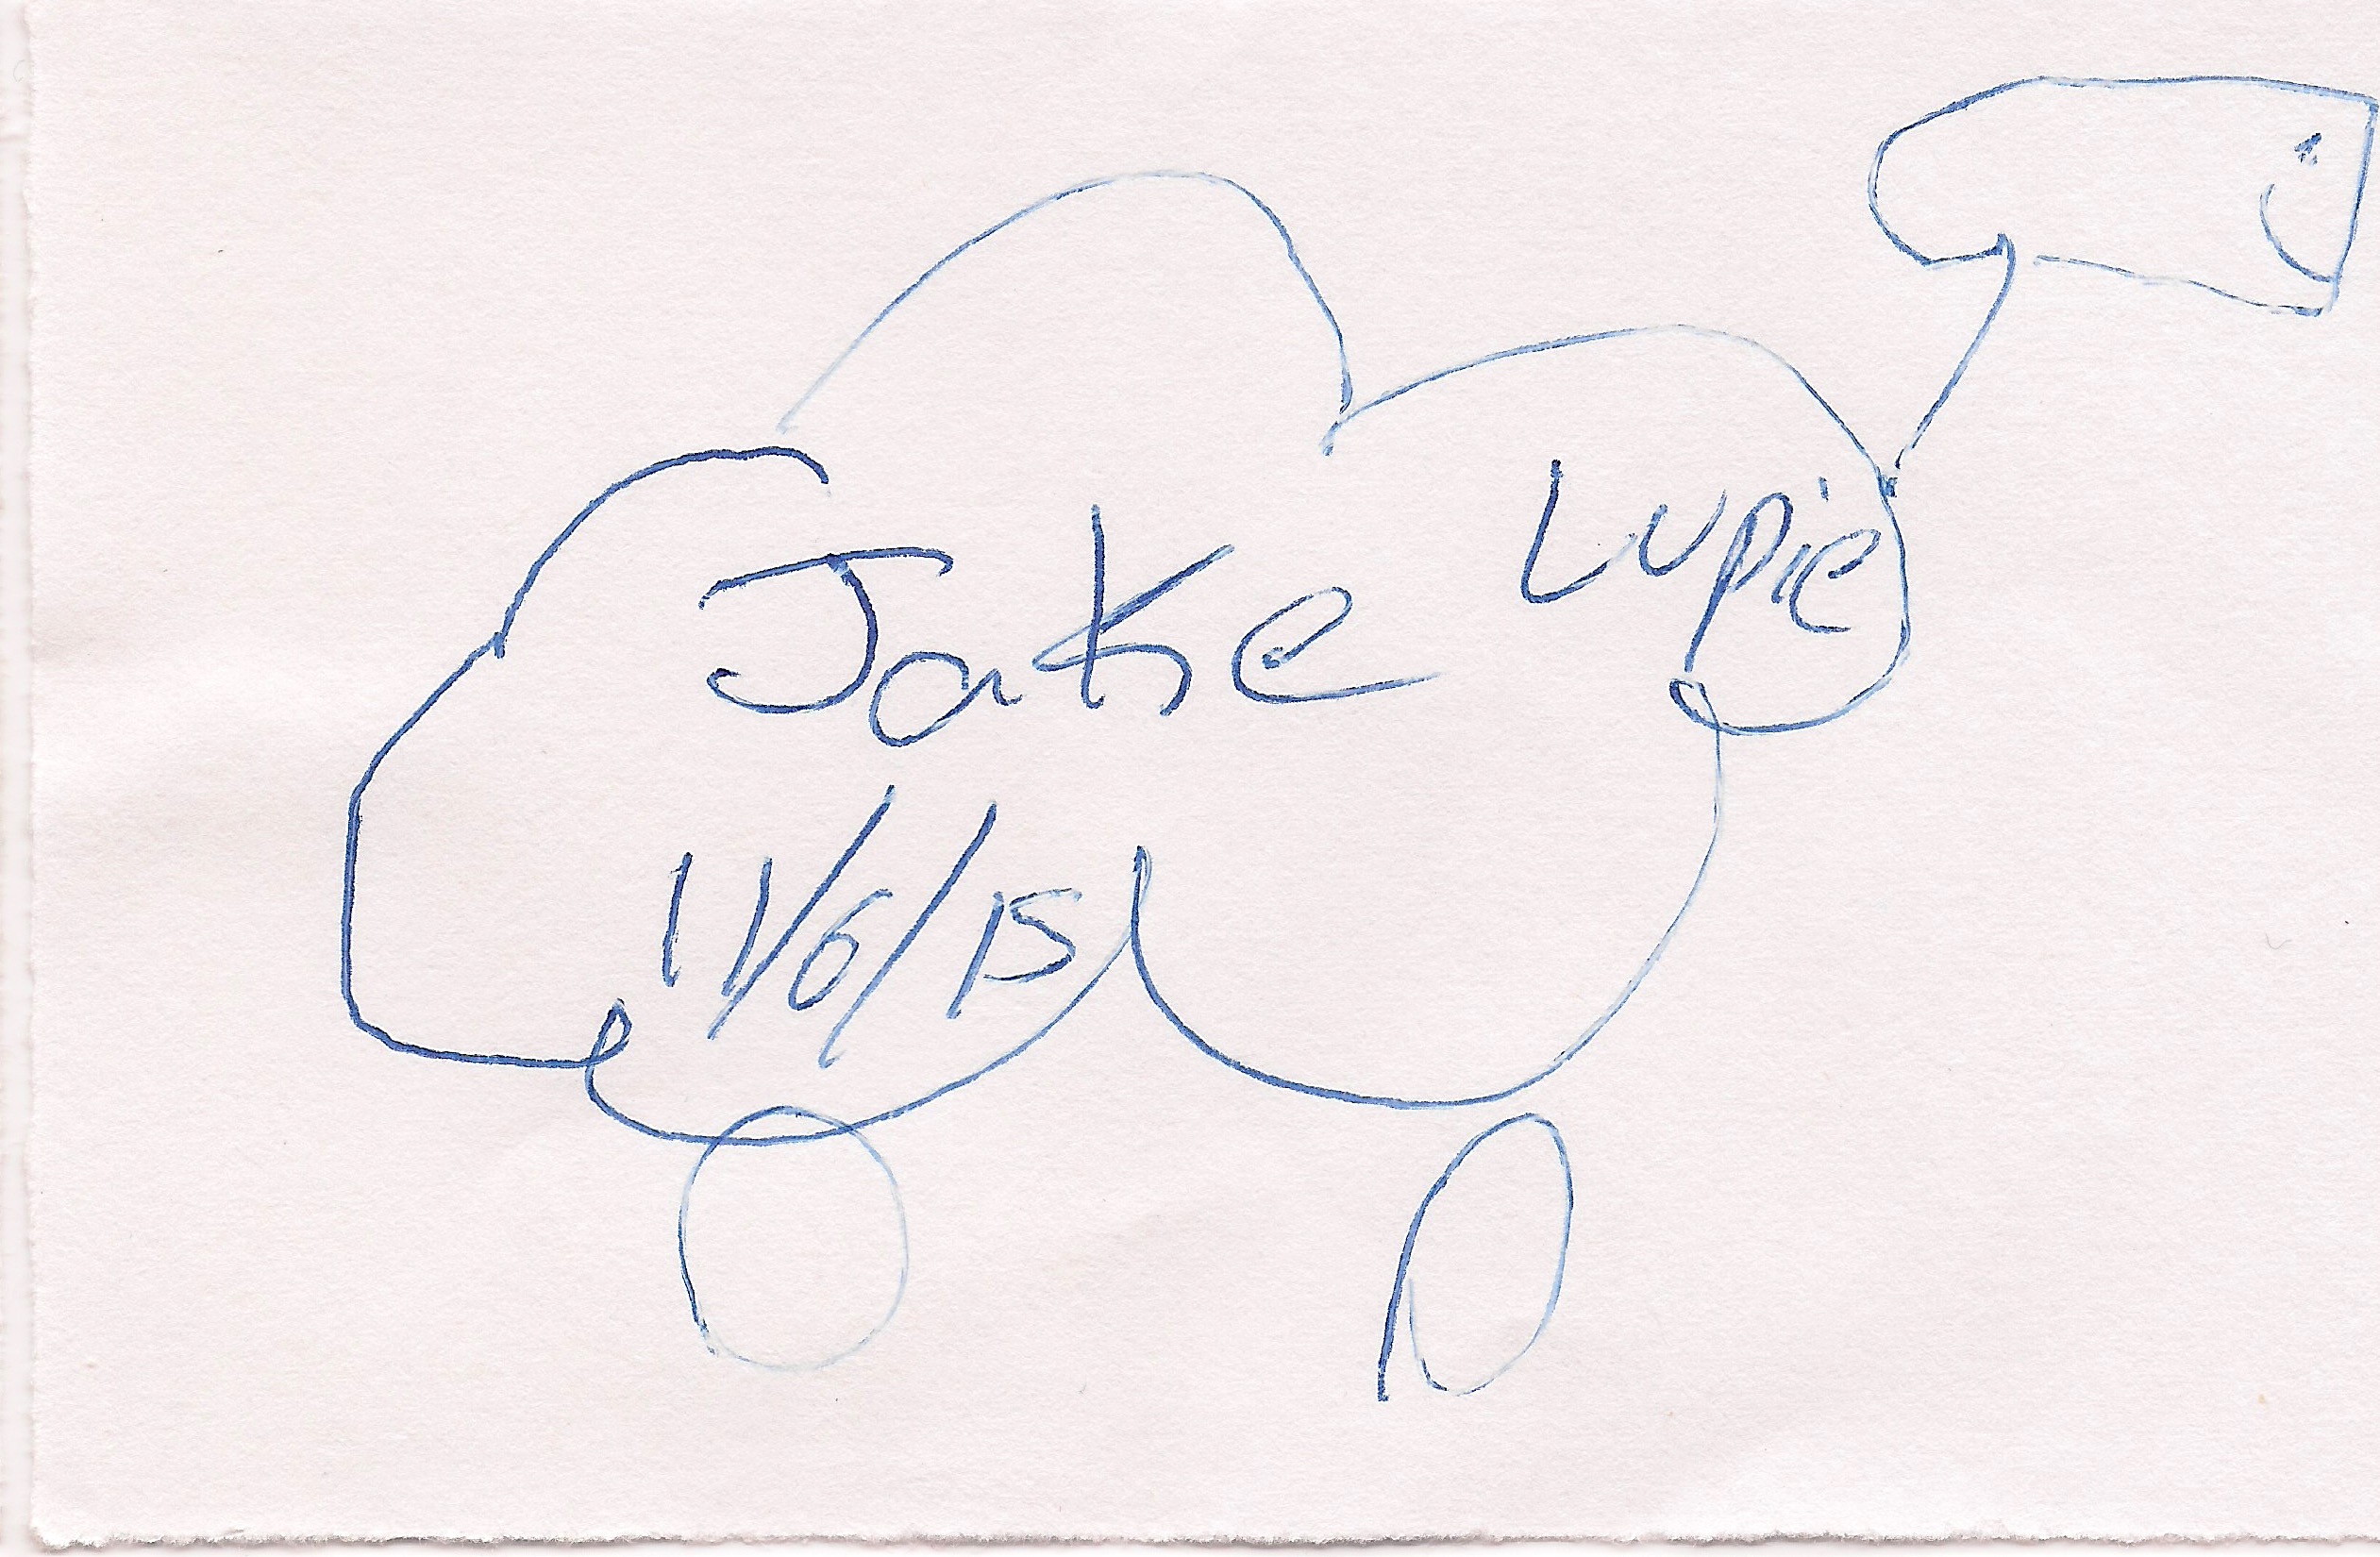 Jake Lupie
11/6/15